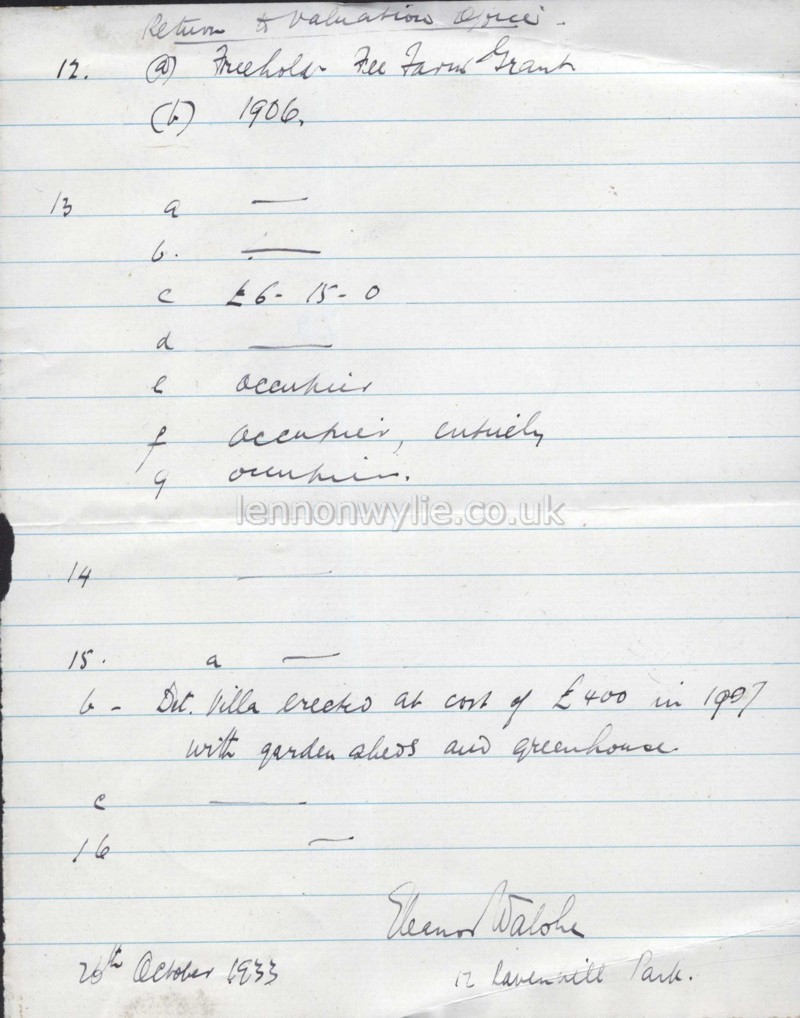 Return to Valuation Office -
12. (a) Freehold - Fee Farm Grant
(b) 1906.
13 a —
b. —
c £6 - 15 - 0
d —
e occupier
f occupier, entirely
g occupier.
lennonwylie.co.uk
14 —
15. a —
b - Det. Villa erected at cost of £400 in 1907
with garden sheds and greenhouse.
c —
16 —
Eleanor Walshe
26th October 1933 12 Ravenhill Park.